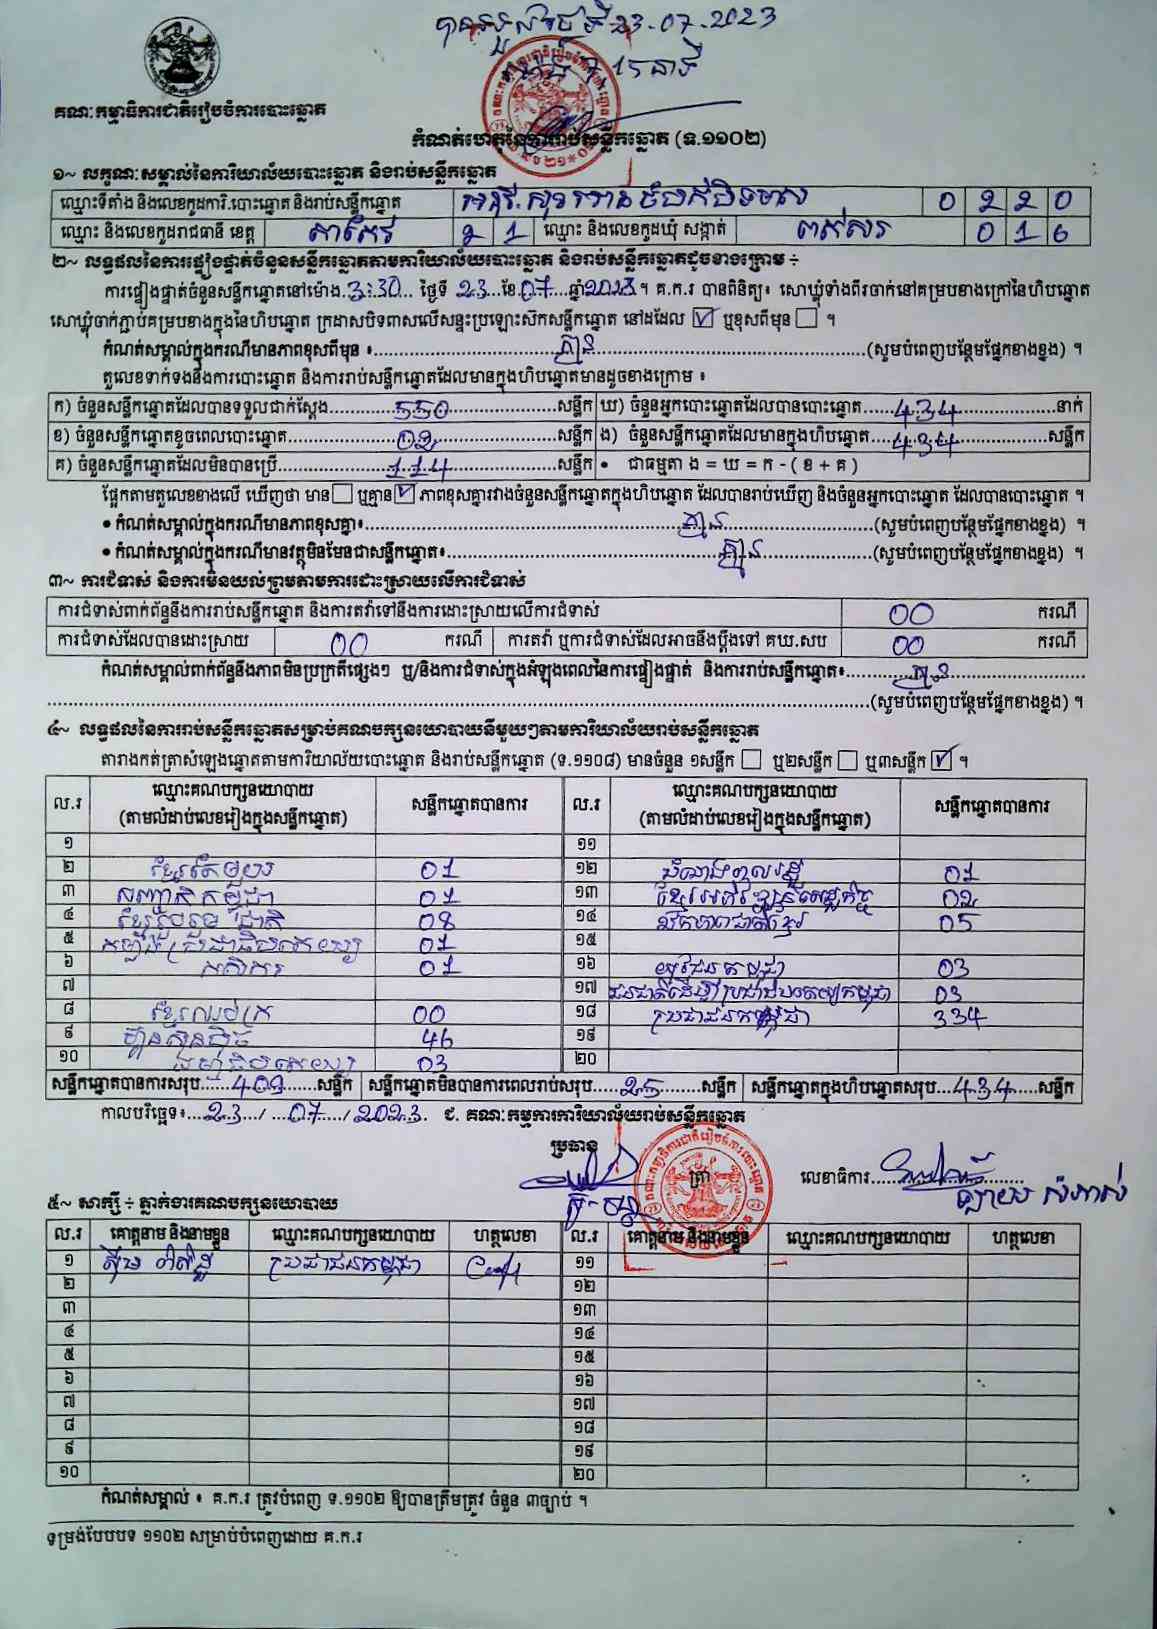 23-07-2023
15 នាទី
គណៈកម្មាធិការជាតិរៀបចំការបោះឆ្នោត
កំណត់ហេតុនៃការរាប់សន្លឹកឆ្នោត (ទ.១១០២)
១~ លក្ខណៈសម្គាល់នៃការិយាល័យបោះឆ្នោត និងរាប់សន្លឹកឆ្នោត
ឈ្មោះទីតាំង និងលេខកូដការិ.បោះឆ្នោត និងរាប់សន្លឹកឆ្នោត 0 2 2 0
ឈ្មោះ និងលេខកូដរាជធានី ខេត្ត តាកែវ 2 1 ឈ្មោះ និងលេខកូដឃុំ សង្កាត់ ពត់សរ 0 1 6
២~ លទ្ធផលនៃការផ្ទៀងផ្ទាត់ចំនួនសន្លឹកឆ្នោតតាមការិយាល័យបោះឆ្នោត និងរាប់សន្លឹកឆ្នោតដូចខាងក្រោម ÷
ការផ្ទៀងផ្ទាត់ចំនួនសន្លឹកឆ្នោតនៅម៉ោង 3:30 ថ្ងៃទី 23 ខែ 07 ឆ្នាំ 2023 ។ គ.ក.រ បានពិនិត្យ៖ សោឃ្លុំទាំងពីរចាក់នៅគម្របខាងក្រៅនៃហិបឆ្នោត
សោឃ្លុំចាក់ភ្ជាប់គម្របខាងក្នុងនៃហិបឆ្នោត ក្រដាសបិទពាសលើសន្ទះប្រឡោះស៊កសន្លឹកឆ្នោត នៅដដែល ☑ ឬខុសពីមុន ☐ ។
កំណត់សម្គាល់ក្នុងករណីមានភាពខុសពីមុន ៖ គ្មាន (សូមបំពេញបន្ថែមផ្នែកខាងខ្នង) ។
តួលេខទាក់ទងនឹងការបោះឆ្នោត និងការរាប់សន្លឹកឆ្នោតដែលមានក្នុងហិបឆ្នោតមានដូចខាងក្រោម ៖
ក) ចំនួនសន្លឹកឆ្នោតដែលបានទទួលជាក់ស្តែង 550 សន្លឹក ឃ) ចំនួនអ្នកបោះឆ្នោតដែលបានបោះឆ្នោត 434 នាក់
ខ) ចំនួនសន្លឹកឆ្នោតខូចពេលបោះឆ្នោត 02 សន្លឹក ង) ចំនួនសន្លឹកឆ្នោតដែលមានក្នុងហិបឆ្នោត 434 សន្លឹក
គ) ចំនួនសន្លឹកឆ្នោតដែលមិនបានប្រើ 114 សន្លឹក • ជាធម្មតា ង = ឃ = ក - ( ខ + គ )
ផ្អែកតាមតួលេខខាងលើ ឃើញថា មាន ☐ ឬគ្មាន ☑ ភាពខុសគ្នារវាងចំនួនសន្លឹកឆ្នោតក្នុងហិបឆ្នោត ដែលបានរាប់ឃើញ និងចំនួនអ្នកបោះឆ្នោត ដែលបានបោះឆ្នោត ។
• កំណត់សម្គាល់ក្នុងករណីមានភាពខុសគ្នា៖ គ្មាន (សូមបំពេញបន្ថែមផ្នែកខាងខ្នង) ។
• កំណត់សម្គាល់ក្នុងករណីមានវត្ថុមិនមែនជាសន្លឹកឆ្នោត៖ គ្មាន (សូមបំពេញបន្ថែមផ្នែកខាងខ្នង) ។
៣~ ការជំទាស់ និងការមិនយល់ព្រមតាមការដោះស្រាយលើការជំទាស់
ការជំទាស់ពាក់ព័ន្ធនឹងការរាប់សន្លឹកឆ្នោត និងការតវ៉ាទៅនឹងការដោះស្រាយលើការជំទាស់ 00 ករណី
ការជំទាស់ដែលបានដោះស្រាយ 00 ករណី ការតវ៉ា ឬការជំទាស់ដែលអាចនឹងប្តឹងទៅ គឃ.សប 00 ករណី
កំណត់សម្គាល់ពាក់ព័ន្ធនឹងភាពមិនប្រក្រតីផ្សេងៗ ឬ/និងការជំទាស់ក្នុងអំឡុងពេលនៃការផ្ទៀងផ្ទាត់ និងការរាប់សន្លឹកឆ្នោត៖ គ្មាន
(សូមបំពេញបន្ថែមផ្នែកខាងខ្នង) ។
៤~ លទ្ធផលនៃការរាប់សន្លឹកឆ្នោតសម្រាប់គណបក្សនយោបាយនីមួយៗតាមការិយាល័យរាប់សន្លឹកឆ្នោត
តារាងកត់ត្រាសំឡេងឆ្នោតតាមការិយាល័យបោះឆ្នោត និងរាប់សន្លឹកឆ្នោត (ទ.១១០៨) មានចំនួន ១សន្លឹក ☐ ឬ២សន្លឹក ☐ ឬ៣សន្លឹក ☑ ។
ល.រ ឈ្មោះគណបក្សនយោបាយ (តាមលំដាប់លេខរៀងក្នុងសន្លឹកឆ្នោត) សន្លឹកឆ្នោតបានការ ល.រ ឈ្មោះគណបក្សនយោបាយ (តាមលំដាប់លេខរៀងក្នុងសន្លឹកឆ្នោត) សន្លឹកឆ្នោតបានការ
១ ១១
២ ខ្មែរតែមួយ 01 ១២ 01
៣ សញ្ជាតិកម្ពុជា 01 ១៣ ខ្មែរអភិវឌ្ឍន៍សេដ្ឋកិច្ច 02
៤ ខ្មែររួបរួមជាតិ 08 ១៤ ឯកភាពជាតិខ្មែរ 05
៥ កម្លាំងប្រជាធិបតេយ្យ 01 ១៥
៦ កសិករ 01 ១៦ យុវជនកម្ពុជា 03
៧ ១៧ ជនជាតិដើម្បីប្រជាធិបតេយ្យកម្ពុជា 03
៨ ខ្មែរឈប់ក្រ 00 ១៨ ប្រជាជនកម្ពុជា 334
៩ ហ៊្វុនស៊ិនប៉ិច 46 ១៩
១០ 03 ២០
សន្លឹកឆ្នោតបានការសរុប 409 សន្លឹក សន្លឹកឆ្នោតមិនបានការពេលរាប់សរុប 25 សន្លឹក សន្លឹកឆ្នោតក្នុងហិបឆ្នោតសរុប 434 សន្លឹក
កាលបរិច្ឆេទ៖ 23 / 07 / 2023. ជ. គណៈកម្មការការិយាល័យរាប់សន្លឹកឆ្នោត
ប្រធាន ត្រា លេខាធិការ
៥~ សាក្សី ÷ ភ្នាក់ងារគណបក្សនយោបាយ
ល.រ គោត្តនាម និងនាមខ្លួន ឈ្មោះគណបក្សនយោបាយ ហត្ថលេខា ល.រ គោត្តនាម និងនាមខ្លួន ឈ្មោះគណបក្សនយោបាយ ហត្ថលេខា
១ ប្រជាជនកម្ពុជា ១១
២ ១២
៣ ១៣
៤ ១៤
៥ ១៥
៦ ១៦
៧ ១៧
៨ ១៨
៩ ១៩
១០ ២០
កំណត់សម្គាល់ ៖ គ.ក.រ ត្រូវបំពេញ ទ.១១០២ ឱ្យបានត្រឹមត្រូវ ចំនួន ៣ច្បាប់ ។
ទម្រង់បែបបទ ១១០២ សម្រាប់បំពេញដោយ គ.ក.រ